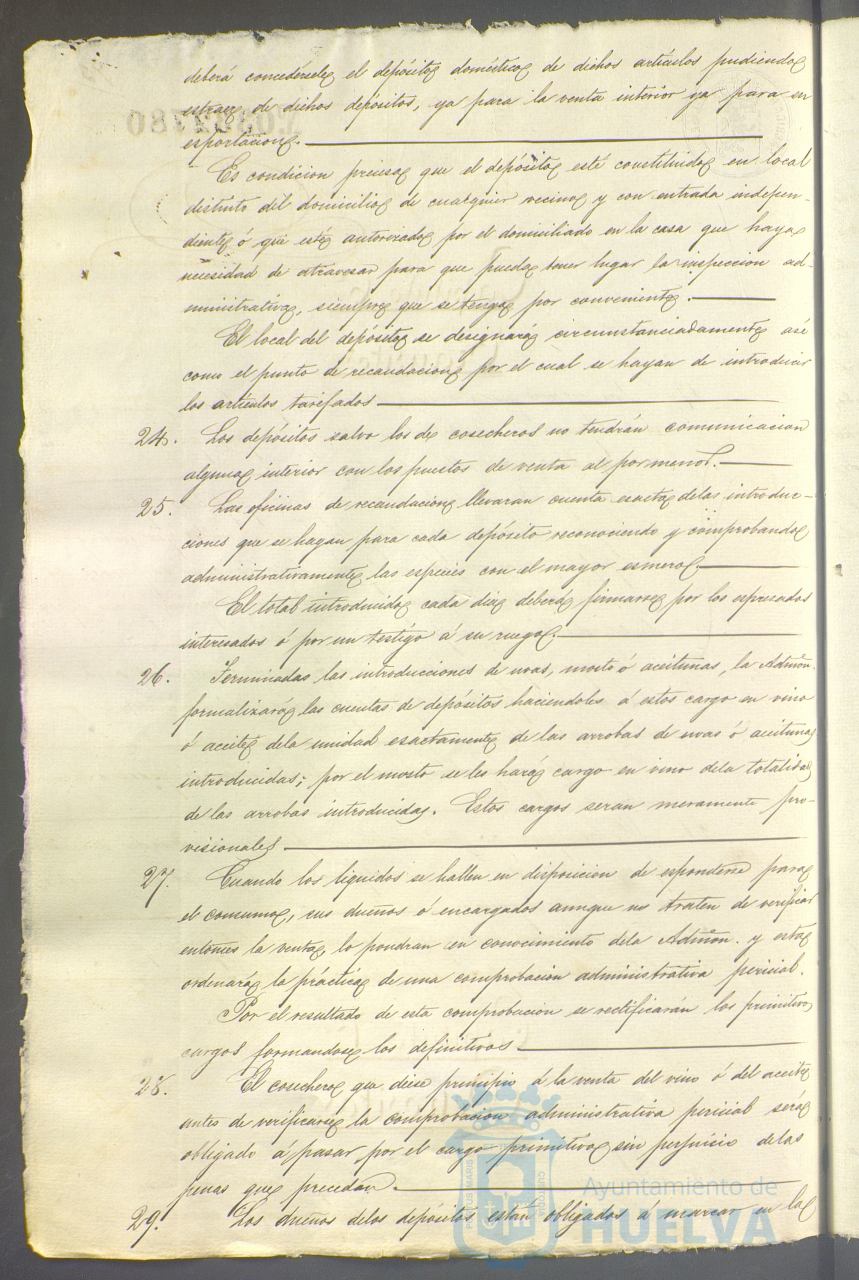 deberá concedérseles el depósito doméstico de dichos artículos pudiendo
estraer de dichos depósitos, ya para la venta interior ya para su
esportacion.
Es condicion precisa que el depósito esté constituido en local
distinto del domicilio de cualquier vecino y con entrada indepen-
diente ó que esté autorizado por el domiciliado en la casa que haya
necesidad de atravesar para que pueda tener lugar la inspeccion ad-
ministrativa, siempre que se tenga por conveniente.
El local del depósito se designará circunstanciadamente asi
como el punto de recaudacion por el cual se hayan de introducir
los artículos tarifados
24. Los depósitos salvo los de cosecheros no tendrán comunicacion
alguna interior con los puestos de venta al por menor.
25. Las oficinas de recaudacion llevaran cuenta exacta delas introduc-
ciones que se hagan para cada depósito reconociendo y comprobando
administrativamente las especies con el mayor esmero.
El total introducido cada dia deberá firmarse por los espresados
interesados ó por un testigo á su ruego.
26. Terminadas las introducciones de uvas, mosto ó aceitunas, la Admon.
formalizará las cuentas de depósitos haciendoles á estos cargo en vino
ó aceite dela unidad esactamente de las arrobas de uvas ó aceitunas
introducidas; por el mosto se les hará cargo en vino dela totalidad
de las arrobas introducidas. Estos cargos seran meramente pro-
visionales.
27. Cuando los liquidos se hallen en disposicion de espenderse para
el consumo, sus dueños ó encargados aunque no traten de verificar
entonces la venta, lo pondran en conocimiento dela Admon. y esta
ordenará la práctica de una comprobacion administrativa pericial.
Por el resultado de esta comprobacion se rectificarán los primitivos
cargos formandose los definitivos.
28. El cosechero que diese principio á la venta del vino ó del aceite
antes de verificarse la comprobacion administrativa pericial será
obligado á pasar por el cargo primitivo sin perjuicio delas
penas que procedan.
29. Los dueños delos depósitos estan obligados á marcar en la
Ayuntamiento de
HUELVA